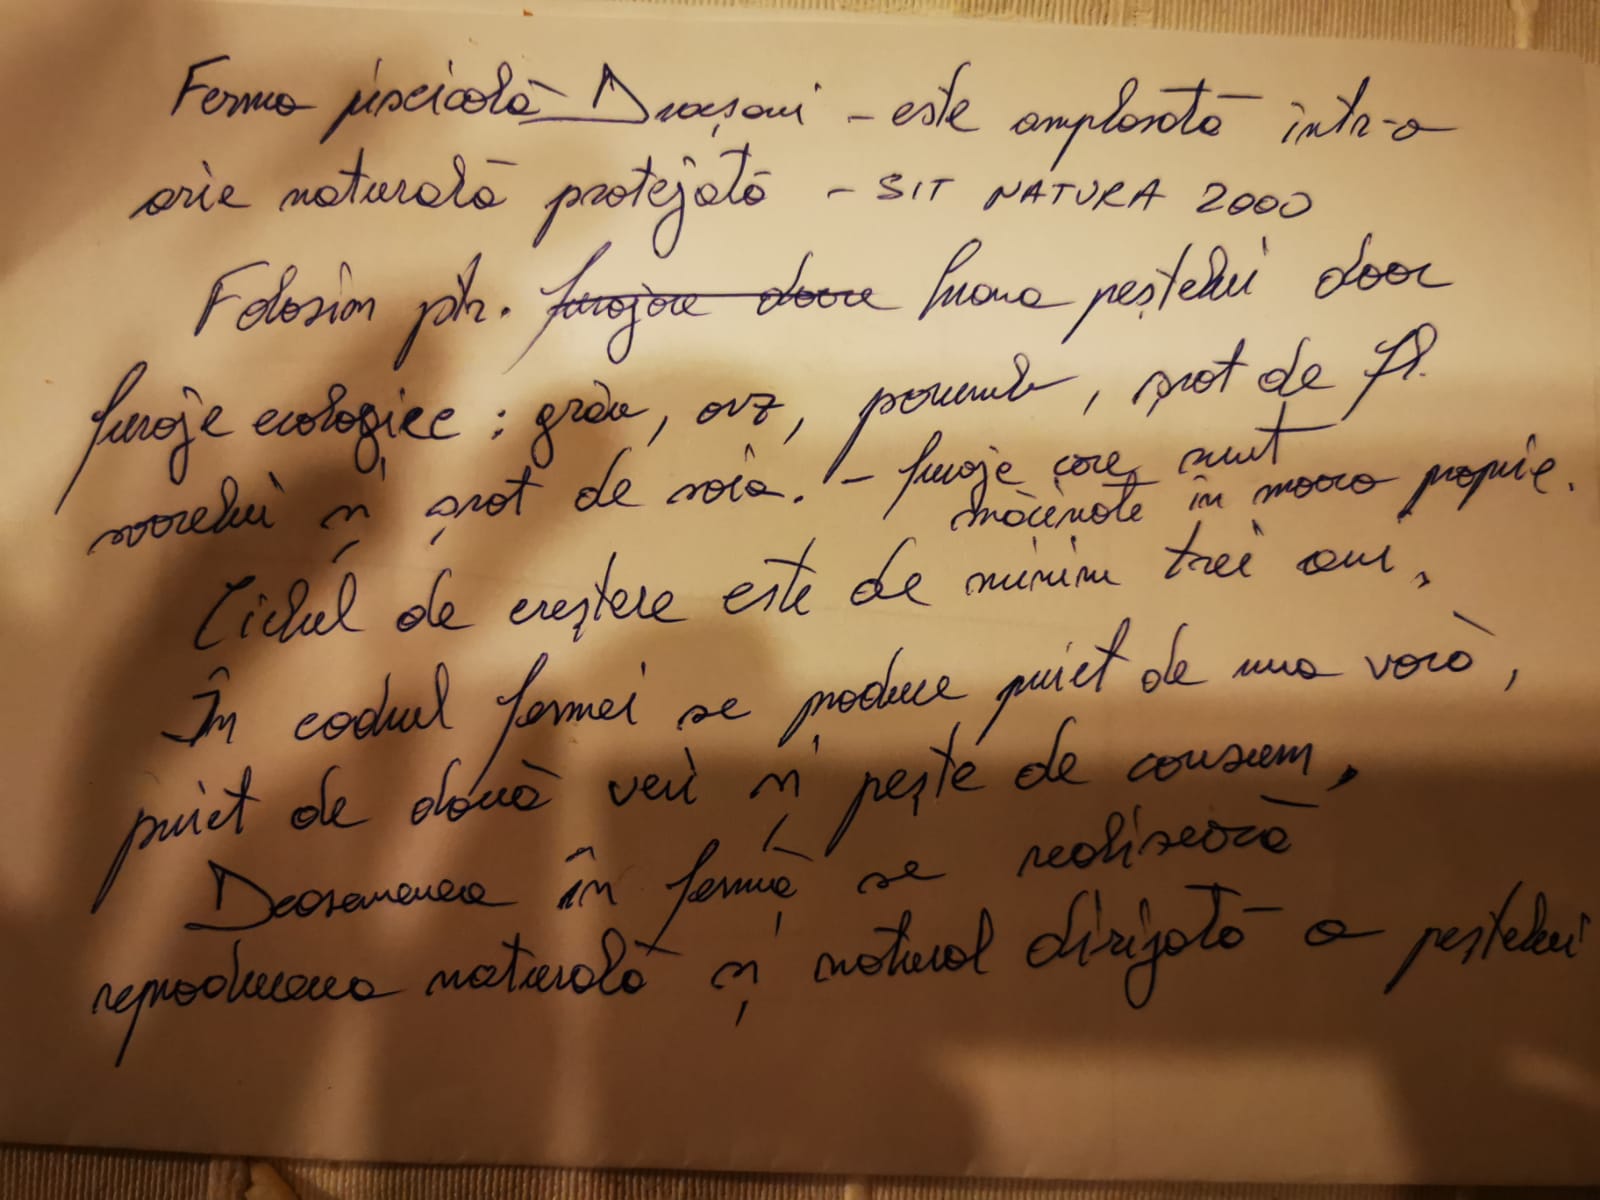 Ferma piscicolă Dracșani - este amplasată într-o
arie naturală protejată - SIT NATURA 2000
Folosim ptr. furajare doare hrana peștelui doar
furaje ecologice : grâu, orz, porumb, șrot de fl.
soarelui și șrot de soia. - furaje care sunt
măcinate în moara proprie.
Ciclul de creștere este de minim trei ani.
În cadrul fermei se produce puiet de una vară,
puiet de două veri și pește de consum.
Deasemenea în fermă se realizează
reproducerea naturală și natural dirijată a peștelui